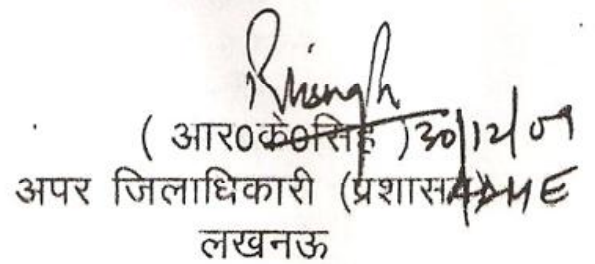 RKSingh
( आर0के0सिंह ) 30/12/09
अपर जिलाधिकारी (प्रशासन) ADM E
लखनऊ